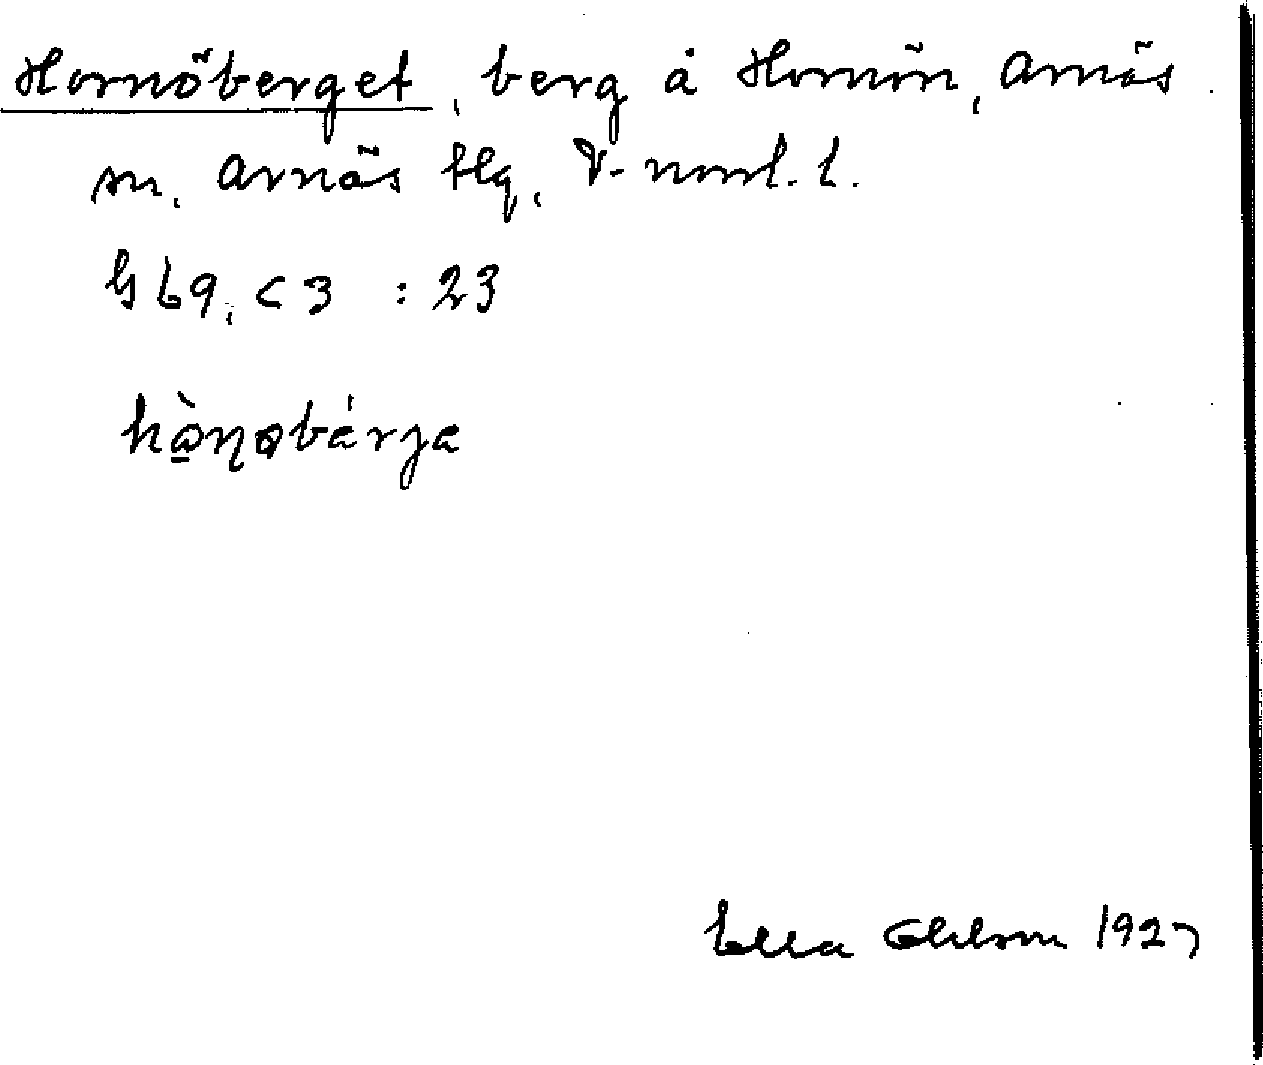 Hornöberget, berg å Hornön, Arnäs
sn, Arnäs tlg, V-norrl. l.
G 69, C 3 : 23
hàṇøbárja
Ella Ohlson 1927